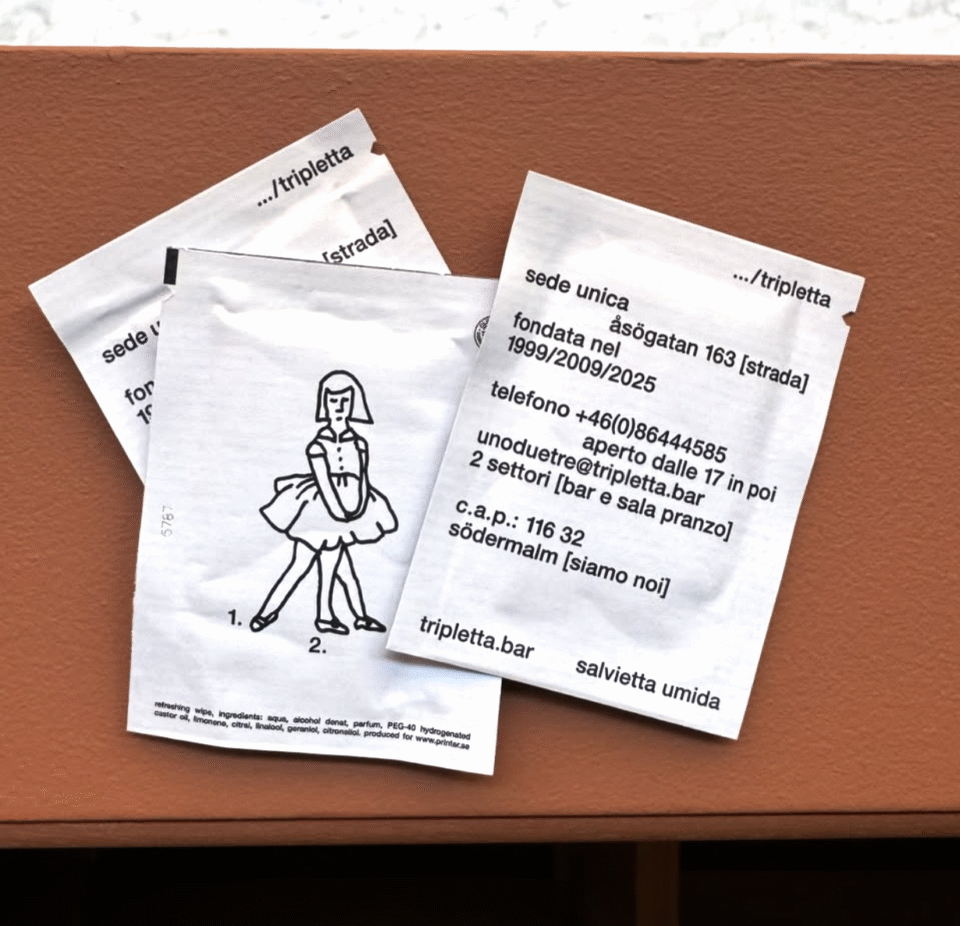 .../tripletta
[strada]
sede
fon
19
5787
1.
2.
refreshing wipe, ingredients: aqua, alcohol denat, parfum, PEG-40 hydrogenated
castor oil, limonene, citral, linalool, geraniol, citronellol. produced for www.printer.se
.../tripletta
sede unica
åsögatan 163 [strada]
fondata nel
1999/2009/2025
telefono +46(0)86444585
aperto dalle 17 in poi
unoduetre@tripletta.bar
2 settori [bar e sala pranzo]
c.a.p.: 116 32
södermalm [siamo noi]
tripletta.bar
salvietta umida